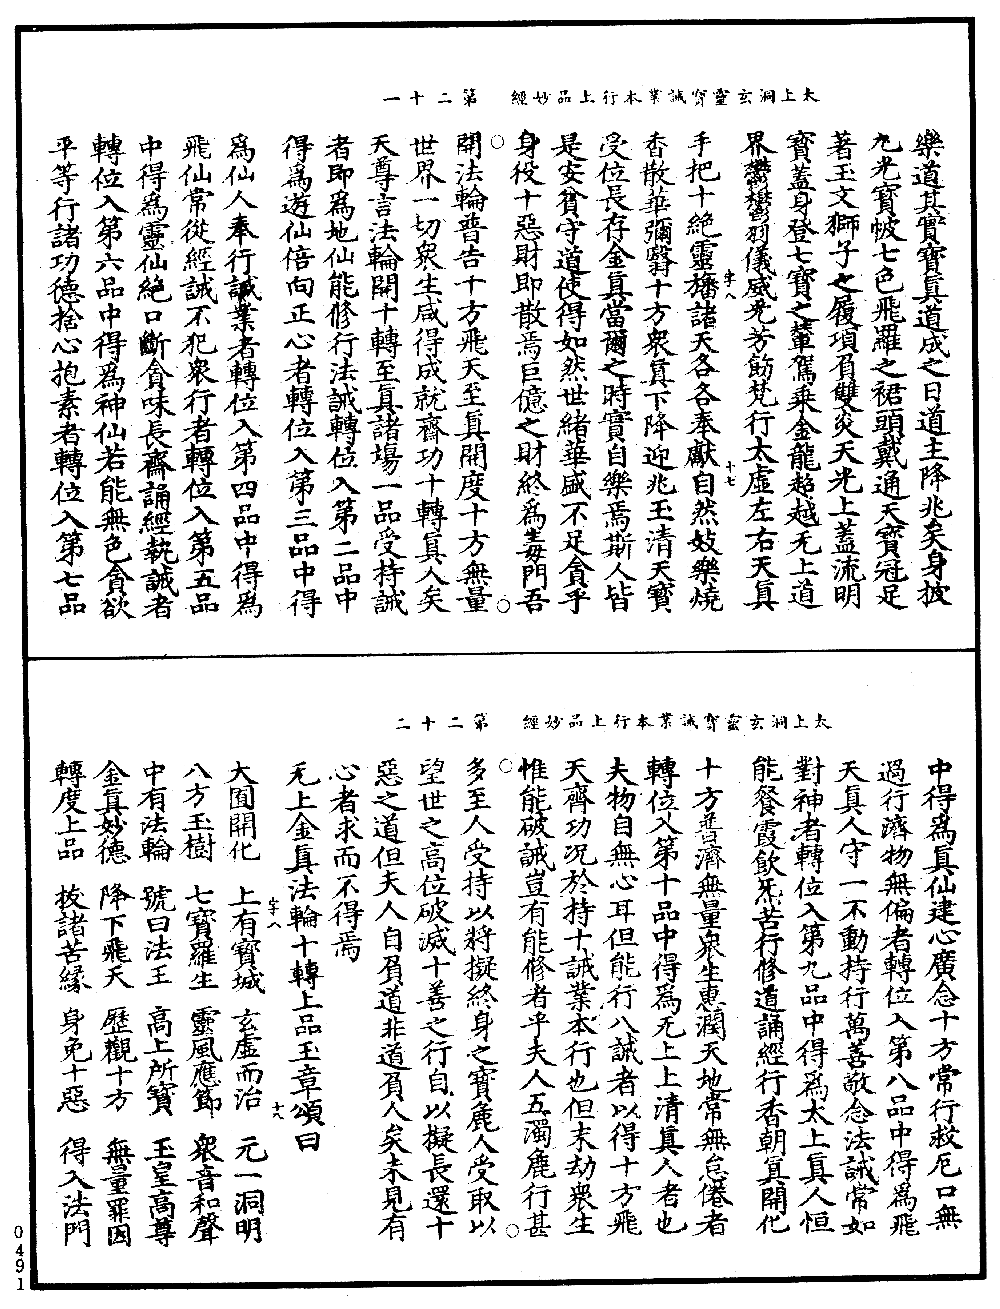 太上洞玄靈寶誡業本行上品妙經　第二十一
樂道其實寶真道成之日道主降兆矣身披
九光寶帔七色飛羅之裙頭戴通天寶冠足
著玉文獅子之履項負雙炎天光上蓋流明
寶蓋身登七寶之輦駕乘金龍超越无上道
界鬱鬱羽儀威光芳飭梵行太虛左右天真
手把十絕靈旛諸天各各奉獻自然妓樂燒
香散華彌翳十方眾真下降迎兆玉清天寶
受位長存金真當爾之時實自樂焉斯人皆
是安貧守道使得如然世緒華盛不足貪乎
身役十惡財即散焉巨億之財終為毒門吾
開法輪普告十方飛天至真開度十方無量
世界一切眾生咸得成就齋功十轉真人矣
天尊言法輪開十轉至真諸場一品受持誡
者即為地仙能修行法誡轉位入第二品中
得為遊仙倍向正心者轉位入第三品中得
為仙人奉行誡業者轉位入第四品中得為
飛仙常從經誡不犯眾行者轉位入第五品
中得為靈仙絕口斷貪味長齋誦經執誡者
轉位入第六品中得為神仙若能無色貪欲
平等行諸功德捨心抱素者轉位入第七品
字八
十七
太上洞玄靈寶誡業本行上品妙經　第二十二
中得為真仙建心廣念十方常行救厄口無
過行濟物無偏者轉位入第八品中得為飛
天真人守一不動持行萬善敬念法誡常如
對神者轉位入第九品中得為太上真人恒
能餐霞飲炁苦行修道誦經行香朝真開化
十方普濟無量眾生惠潤天地常無怠倦者
轉位入第十品中得為无上上清真人者也
夫物自無心耳但能行八誡者以得十方飛
天齊功況於持十誡業本行也但末劫眾生
惟能破誡豈有能修者乎夫人五濁麁行甚
多至人受持以將擬終身之寶麁人受取以
望世之高位破滅十善之行自以擬長還十
惡之道但夫人自負道非道負人矣未見有
心者求而不得焉
无上金真法輪十轉上品玉章頌曰
大囿開化　上有寶城　玄虛而治　元一洞明
八方玉樹　七寶羅生　靈風應節　眾音和聲
中有法輪　號曰法王　高上所寶　玉皇高尊
金真妙德　降下飛天　歷觀十方　無量罪因
轉度上品　拔諸苦緣　身免十惡　得入法門
字八
十八
0491